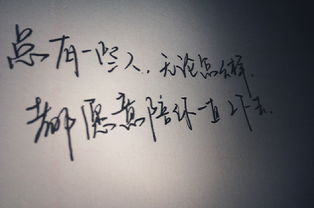 总有一些人，无论怎么样，
都愿意陪你一直下去。